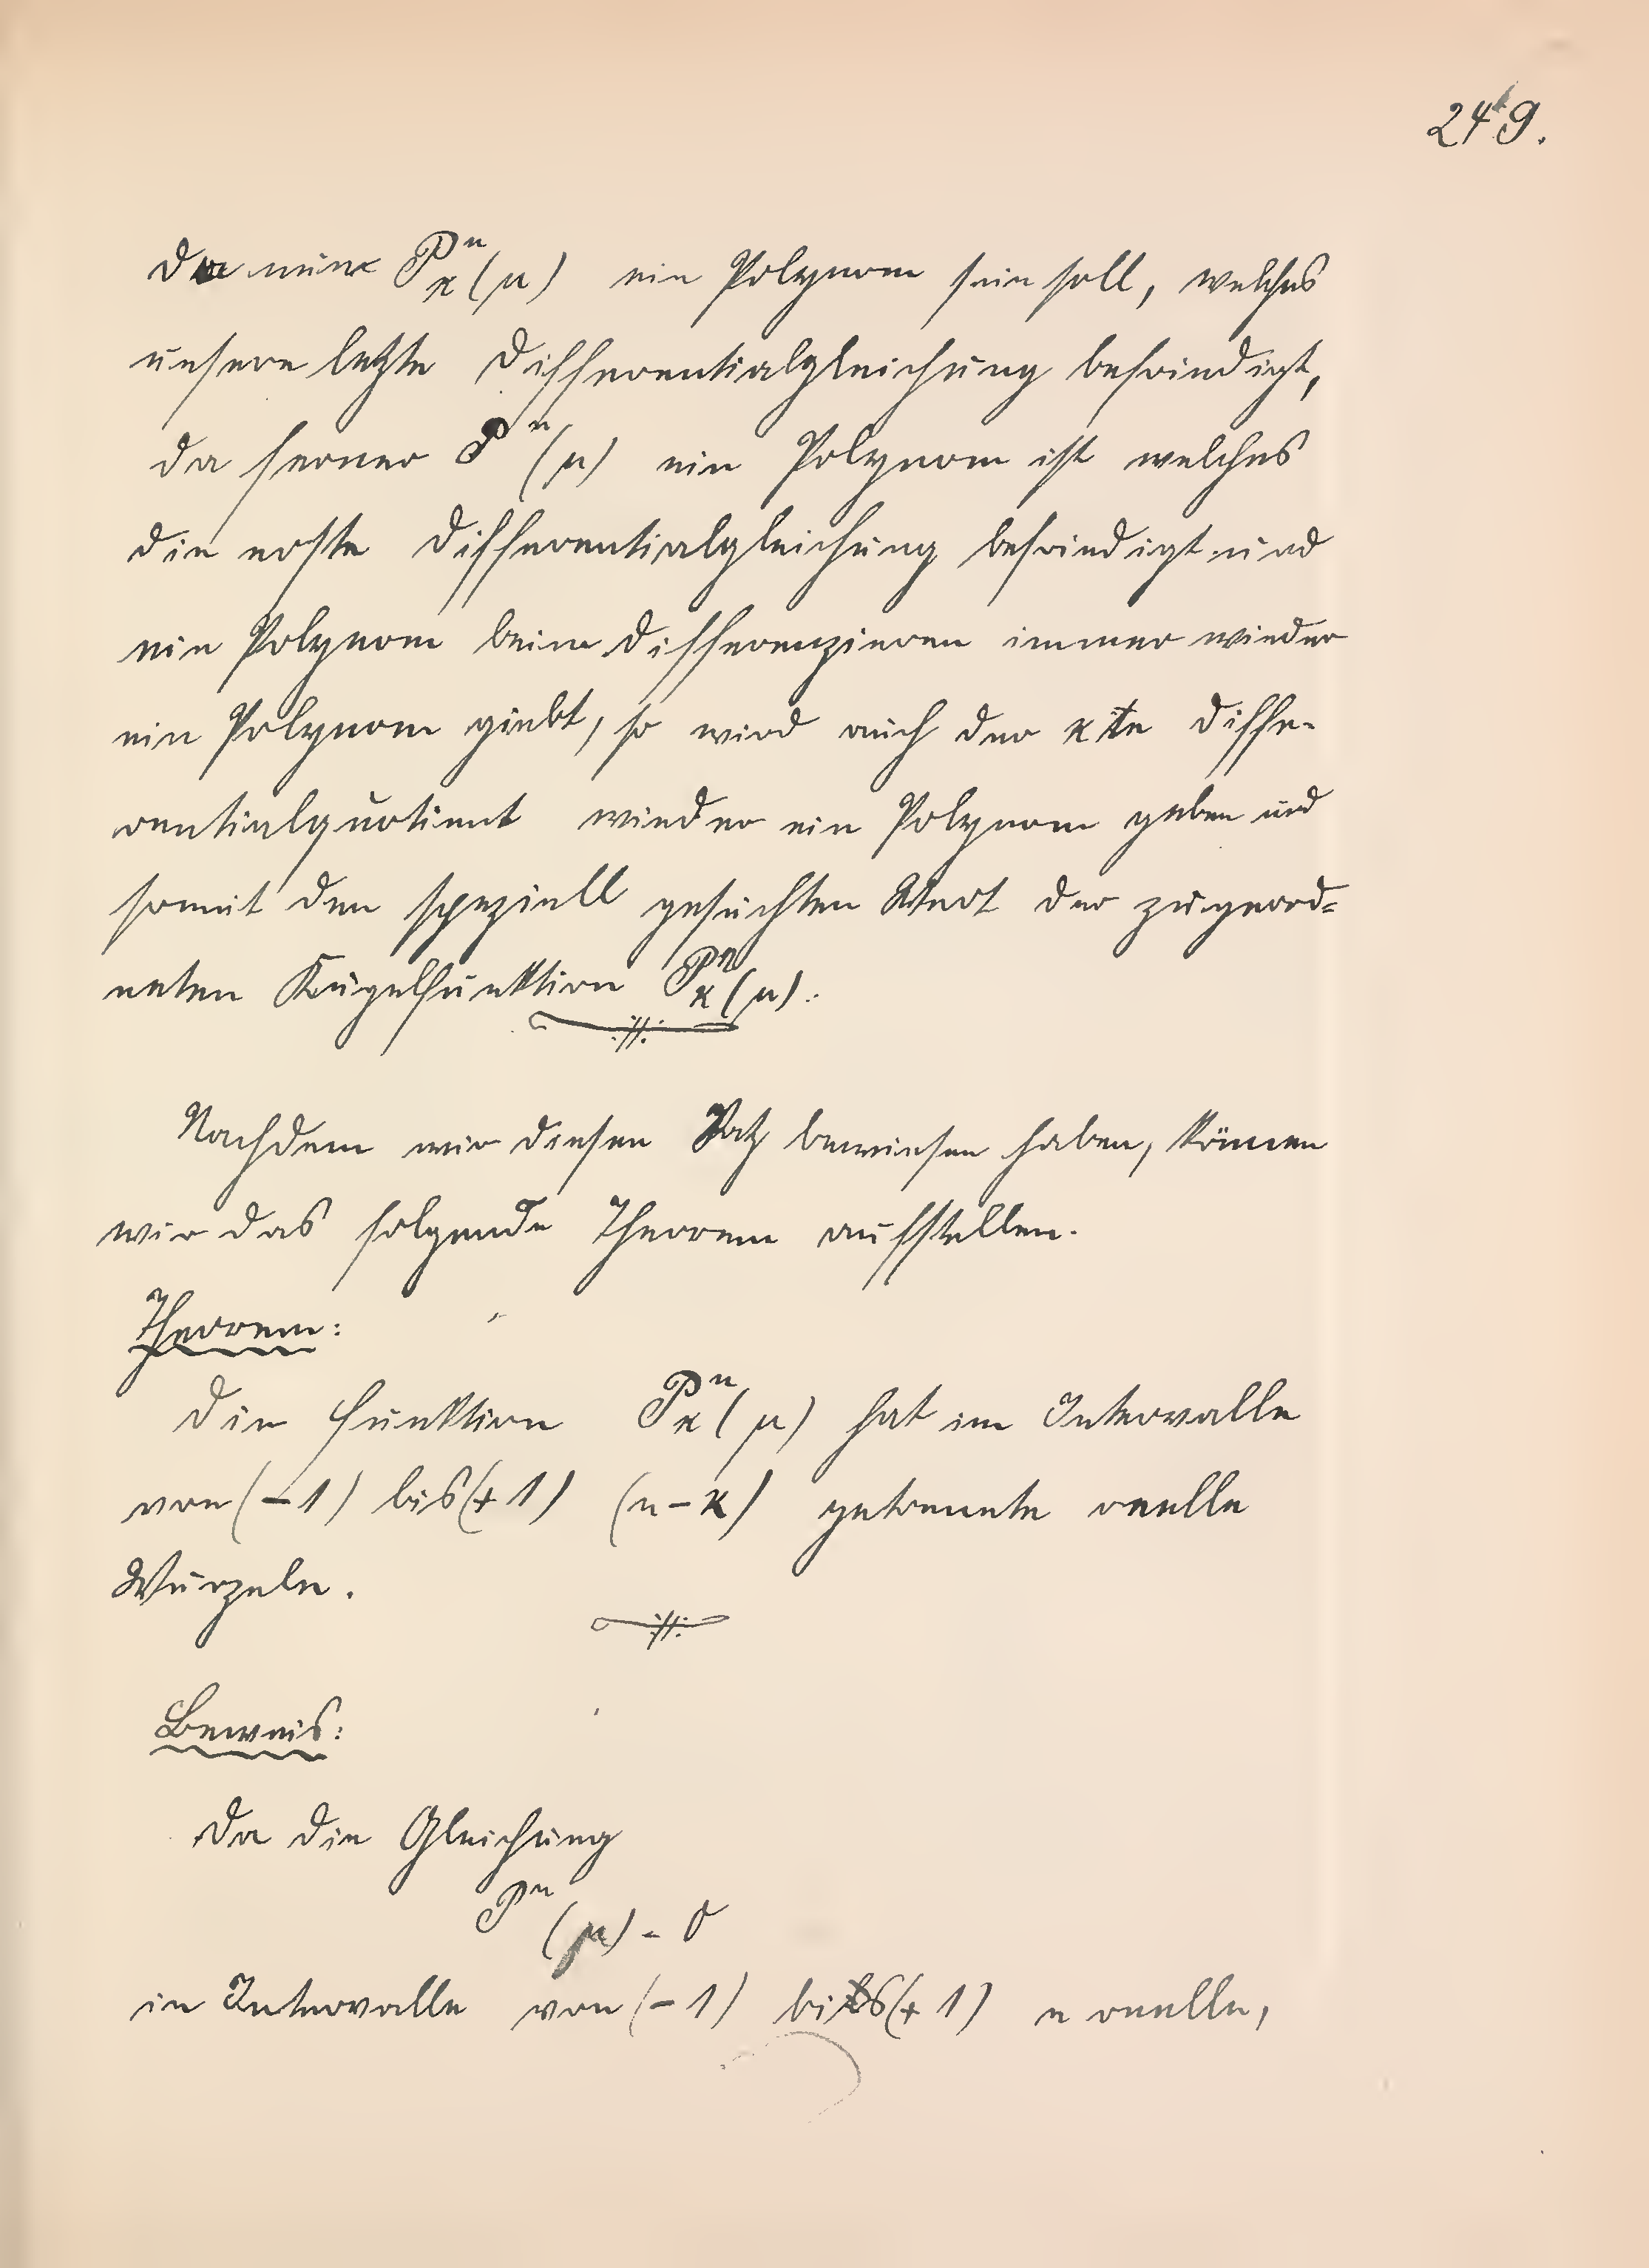 249.
Da nun P^n_κ(μ) ein Polynom sein soll, welches
unsere letzte Differentialgleichung befriedigt,
da ferner P^n(μ) ein Polynom ist welches
die erste Differentialgleichung befriedigt und
ein Polynom beim Differenzieren immer wieder
ein Polynom giebt, so wird auch der κte Diffe-
rentialquotient wieder ein Polynom geben und
somit den speziell gesuchten Wert der zugeord=
neten Kugelfunktion P^n_κ(μ).
Nachdem wir diesen Satz bewiesen haben, können
wir das folgende Theorem aufstellen.
Theorem:
Die Funktion P^n_κ(μ) hat im Intervalle
von (-1) bis (+1) (n-κ) getrennte reelle
Wurzeln.
Beweis:
Da die Gleichung
P^n(μ) = 0
in Intervalle von (-1) bis (+1) n reelle,